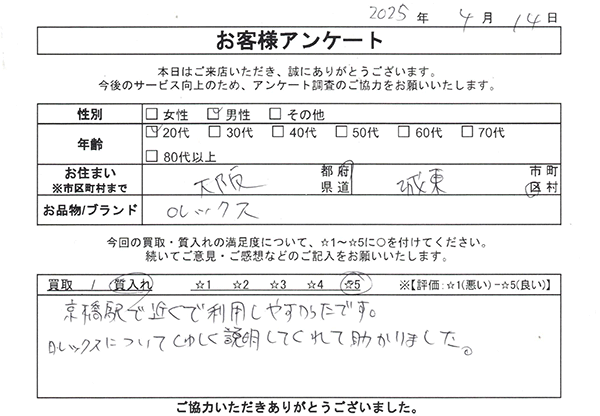 2025 年 4 月 14 日
お客様アンケート
本日はご来店いただき、誠にありがとうございます。
今後のサービス向上のため、アンケート調査のご協力をお願いいたします。
性別 □ 女性 ☑ 男性 □ その他
年齢 ☑ 20代 □ 30代 □ 40代 □ 50代 □ 60代 □ 70代
□ 80代以上
お住まい ※市区町村まで 大阪 都府県道 城東 市町区村
お品物/ブランド ロレックス
今回の買取・質入れの満足度について、☆1～☆5に○を付けてください。
続いてご意見・ご感想などのご記入をお願いいたします。
買取 / 質入れ ☆1 ☆2 ☆3 ☆4 ☆5 ※【評価:☆1(悪い)-☆5(良い)】
京橋駅で近くで利用しやすかったです。
ロレックスについてくわしく説明してくれて助かりました。
ご協力いただきありがとうございました。